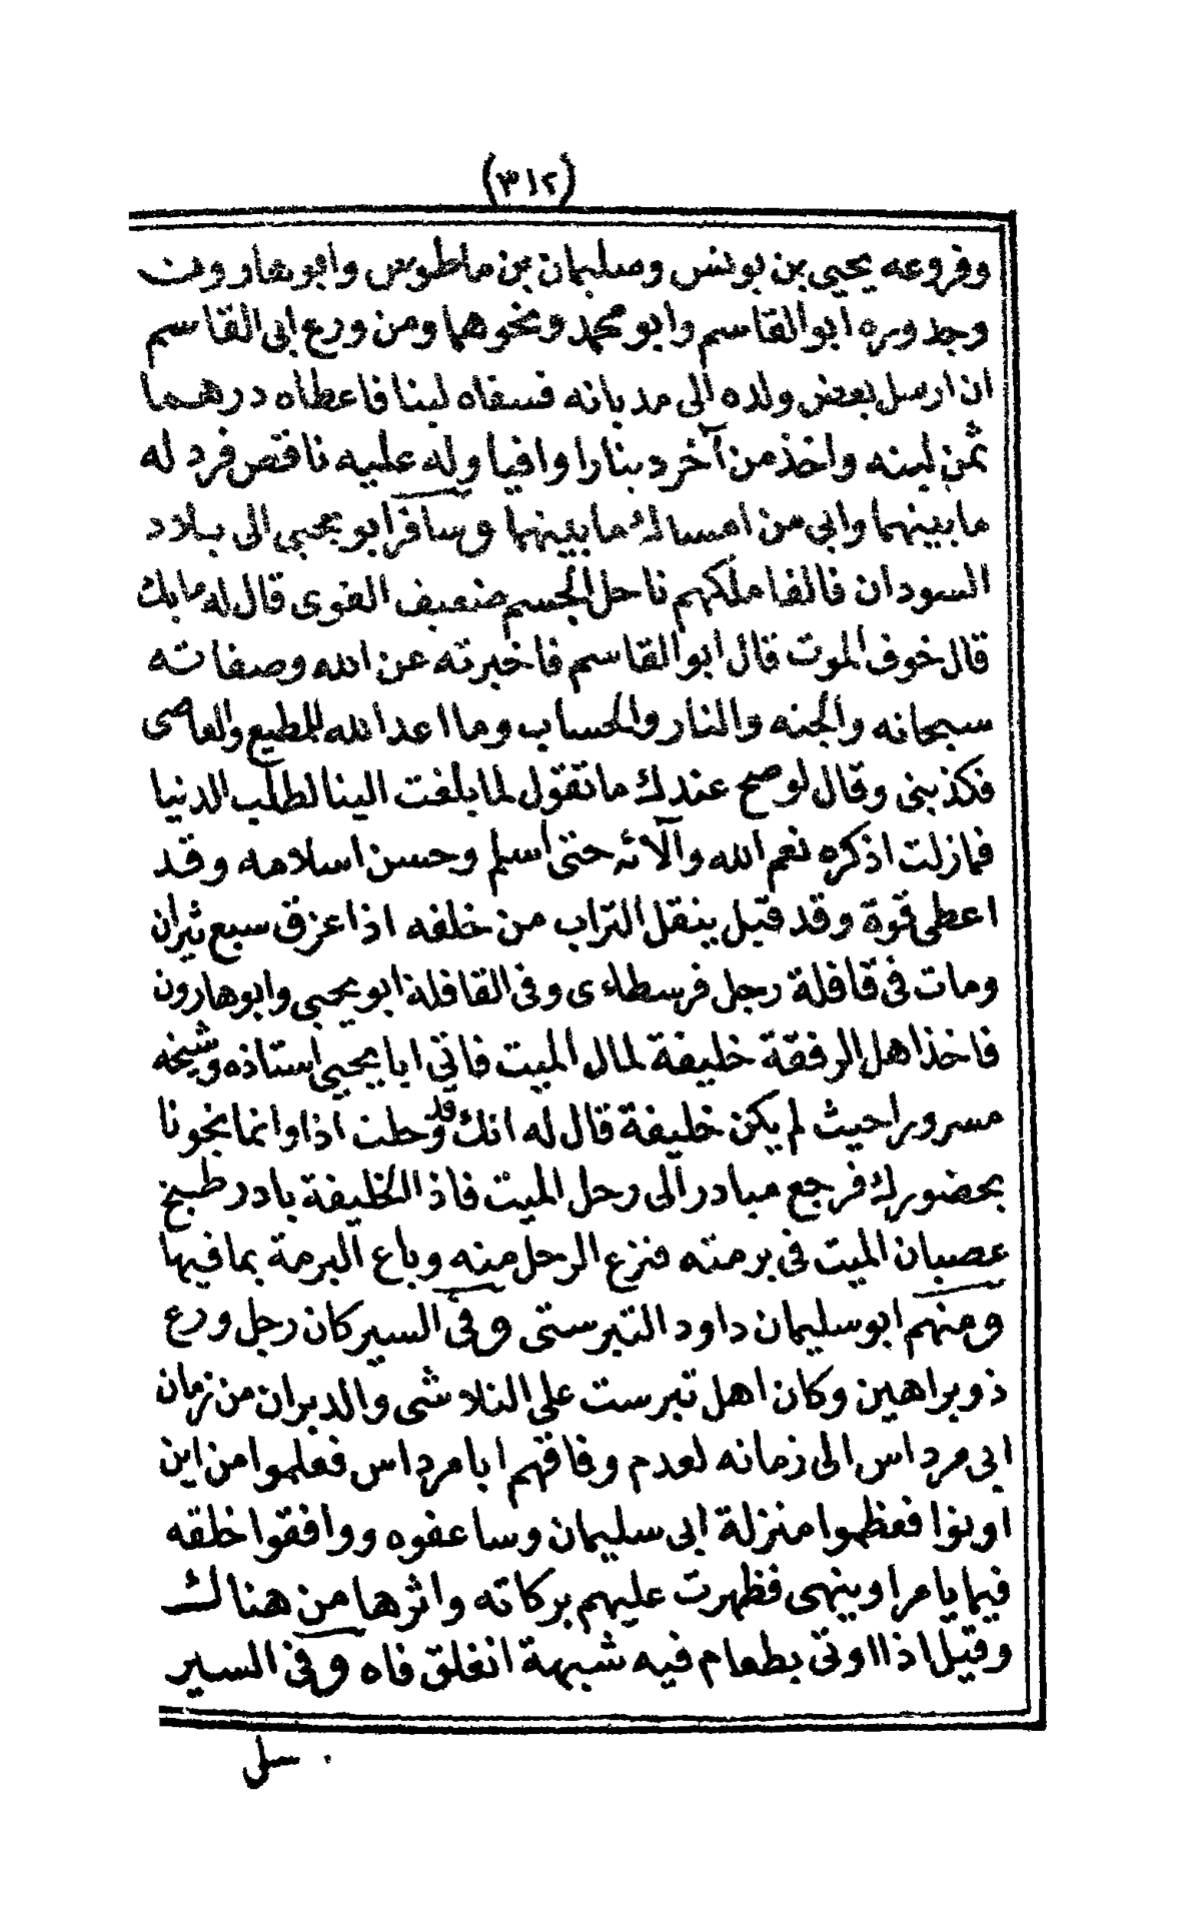 (٣١٢)
وفروعه يحيى بن يونس وسليمان بن ماطوس وابو هارون
وجذوره ابو القاسم وابو محمد ونحوهما ومن ورع ابى القاسم
ان ارسل بعض ولده الى مديانه فسقاه لبنا فاعطاه درهما
ثمن لبنه واخذ من آخر دينارا وافيا وله عليه ناقص فرد له
ما بينهما وابى من امساك ما بينهما وسافر ابو يحيى الى بلاد
السودان فالفا ملكهم ناحل الجسم ضعيف القوى قال له ما بك
قال خوف الموت قال ابو القاسم فاخبرته عن الله وصفاته
سبحانه والجنه والنار والحساب وما اعد الله للمطيع والعاصى
فكذبنى وقال لو صح عندك ما تقول لما بلغت الينا لطلب الدنيا
فمازلت اذكره نعم الله وآلائه حتى اسلم وحسن اسلامه وقد
اعطى قوة وقد قيل ينقل التراب من خلفه اذا عزق سبع ثيران
ومات فى قافلة رجل فرسطاءى وفى القافلة ابو يحيى وابو هارون
فاخذ اهل الرفقة خليفة لمال الميت فاتى ابا يحيى استاذه وشيخه
مسرورا حيث لم يكن خليفة قال له انك قد وحلت اذا وانما نجونا
بحضورك فرجع مبادرا الى رحل الميت فاذ الخليفة بادر طبخ
عصبان الميت فى برمته فنزع الرحل منه وباع البرمة بما فيها
ومنهم ابو سليمان داود التبرستى وفى السير كان رجل ورع
ذو براهين وكان اهل تبرست على التلاشى والدبران من زمان
ابى مرداس الى زمانه لعدم وفاقهم ابا مرداس فعلموا من اين
اوبوا فعظموا منزلة ابى سليمان وساعفوه ووافقوا خلقه
فيما يامر او ينهى فظهرت عليهم بركاته واثرها من هنالك
وقيل اذا اوتى بطعام فيه شبهة انغلق فاه وفى السير
سل